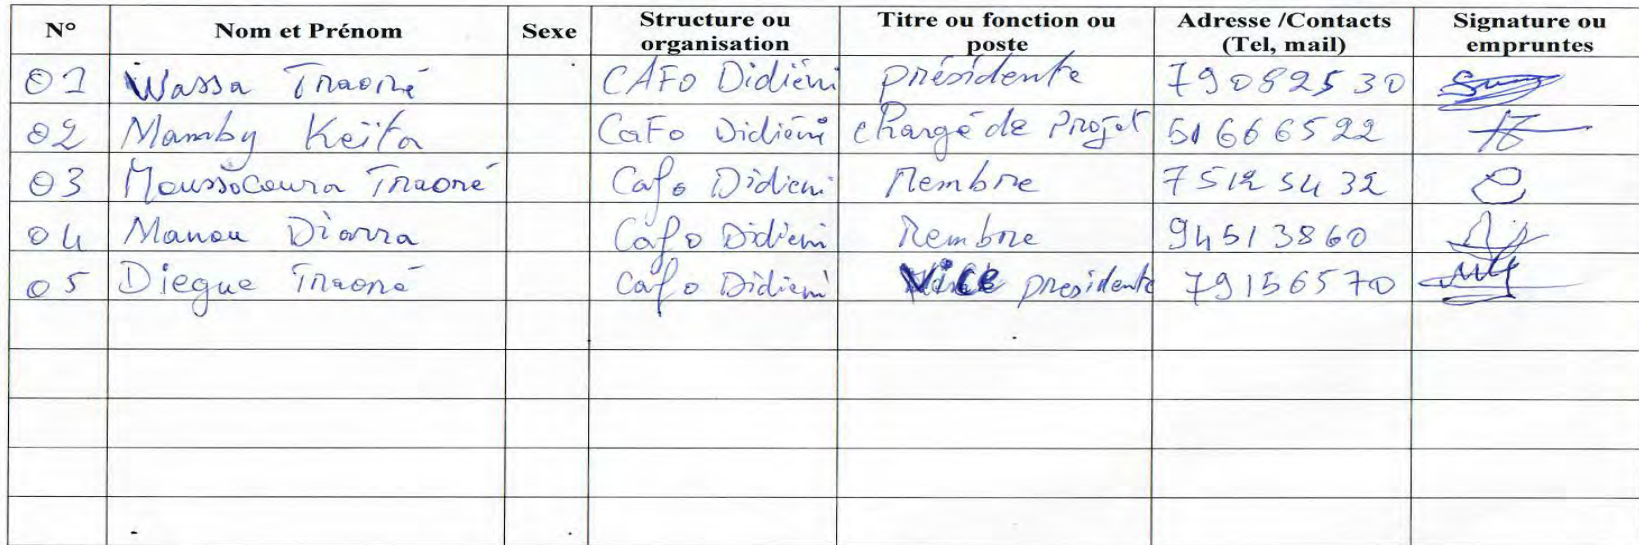 N° Nom et Prénom Sexe Structure ou organisation Titre ou fonction ou poste Adresse /Contacts (Tel, mail) Signature ou empruntes
01 Wassa Traoré CAFo Didiéni présidente 79082530
02 Mamby Keïta CaFo Didiéni chargé de Projet 51666522
03 Moussocoura Traoré Cafo Didieni Membre 75125432
04 Manou Diarra Cafo Didieni Membre 94513860
05 Diegue Traoré Cafo Didieni Vice presidente 79156570